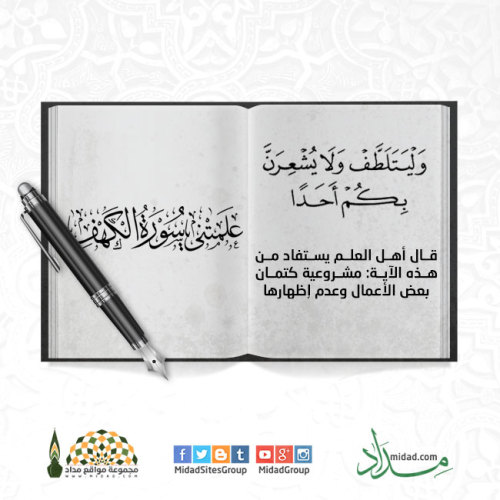 وَلْيَتَلَطَّفْ وَلَا يُشْعِرَنَّ
بِكُمْ أَحَدًا
قال أهل العلم يستفاد من
هذه الآية: مشروعية كتمان
بعض الأعمال وعدم إظهارها
علمتني سورة الكهف
مجموعة مواقع مداد
WWW.MIDAD.COM
MidadSitesGroup
MidadGroup
midad.com
مداد